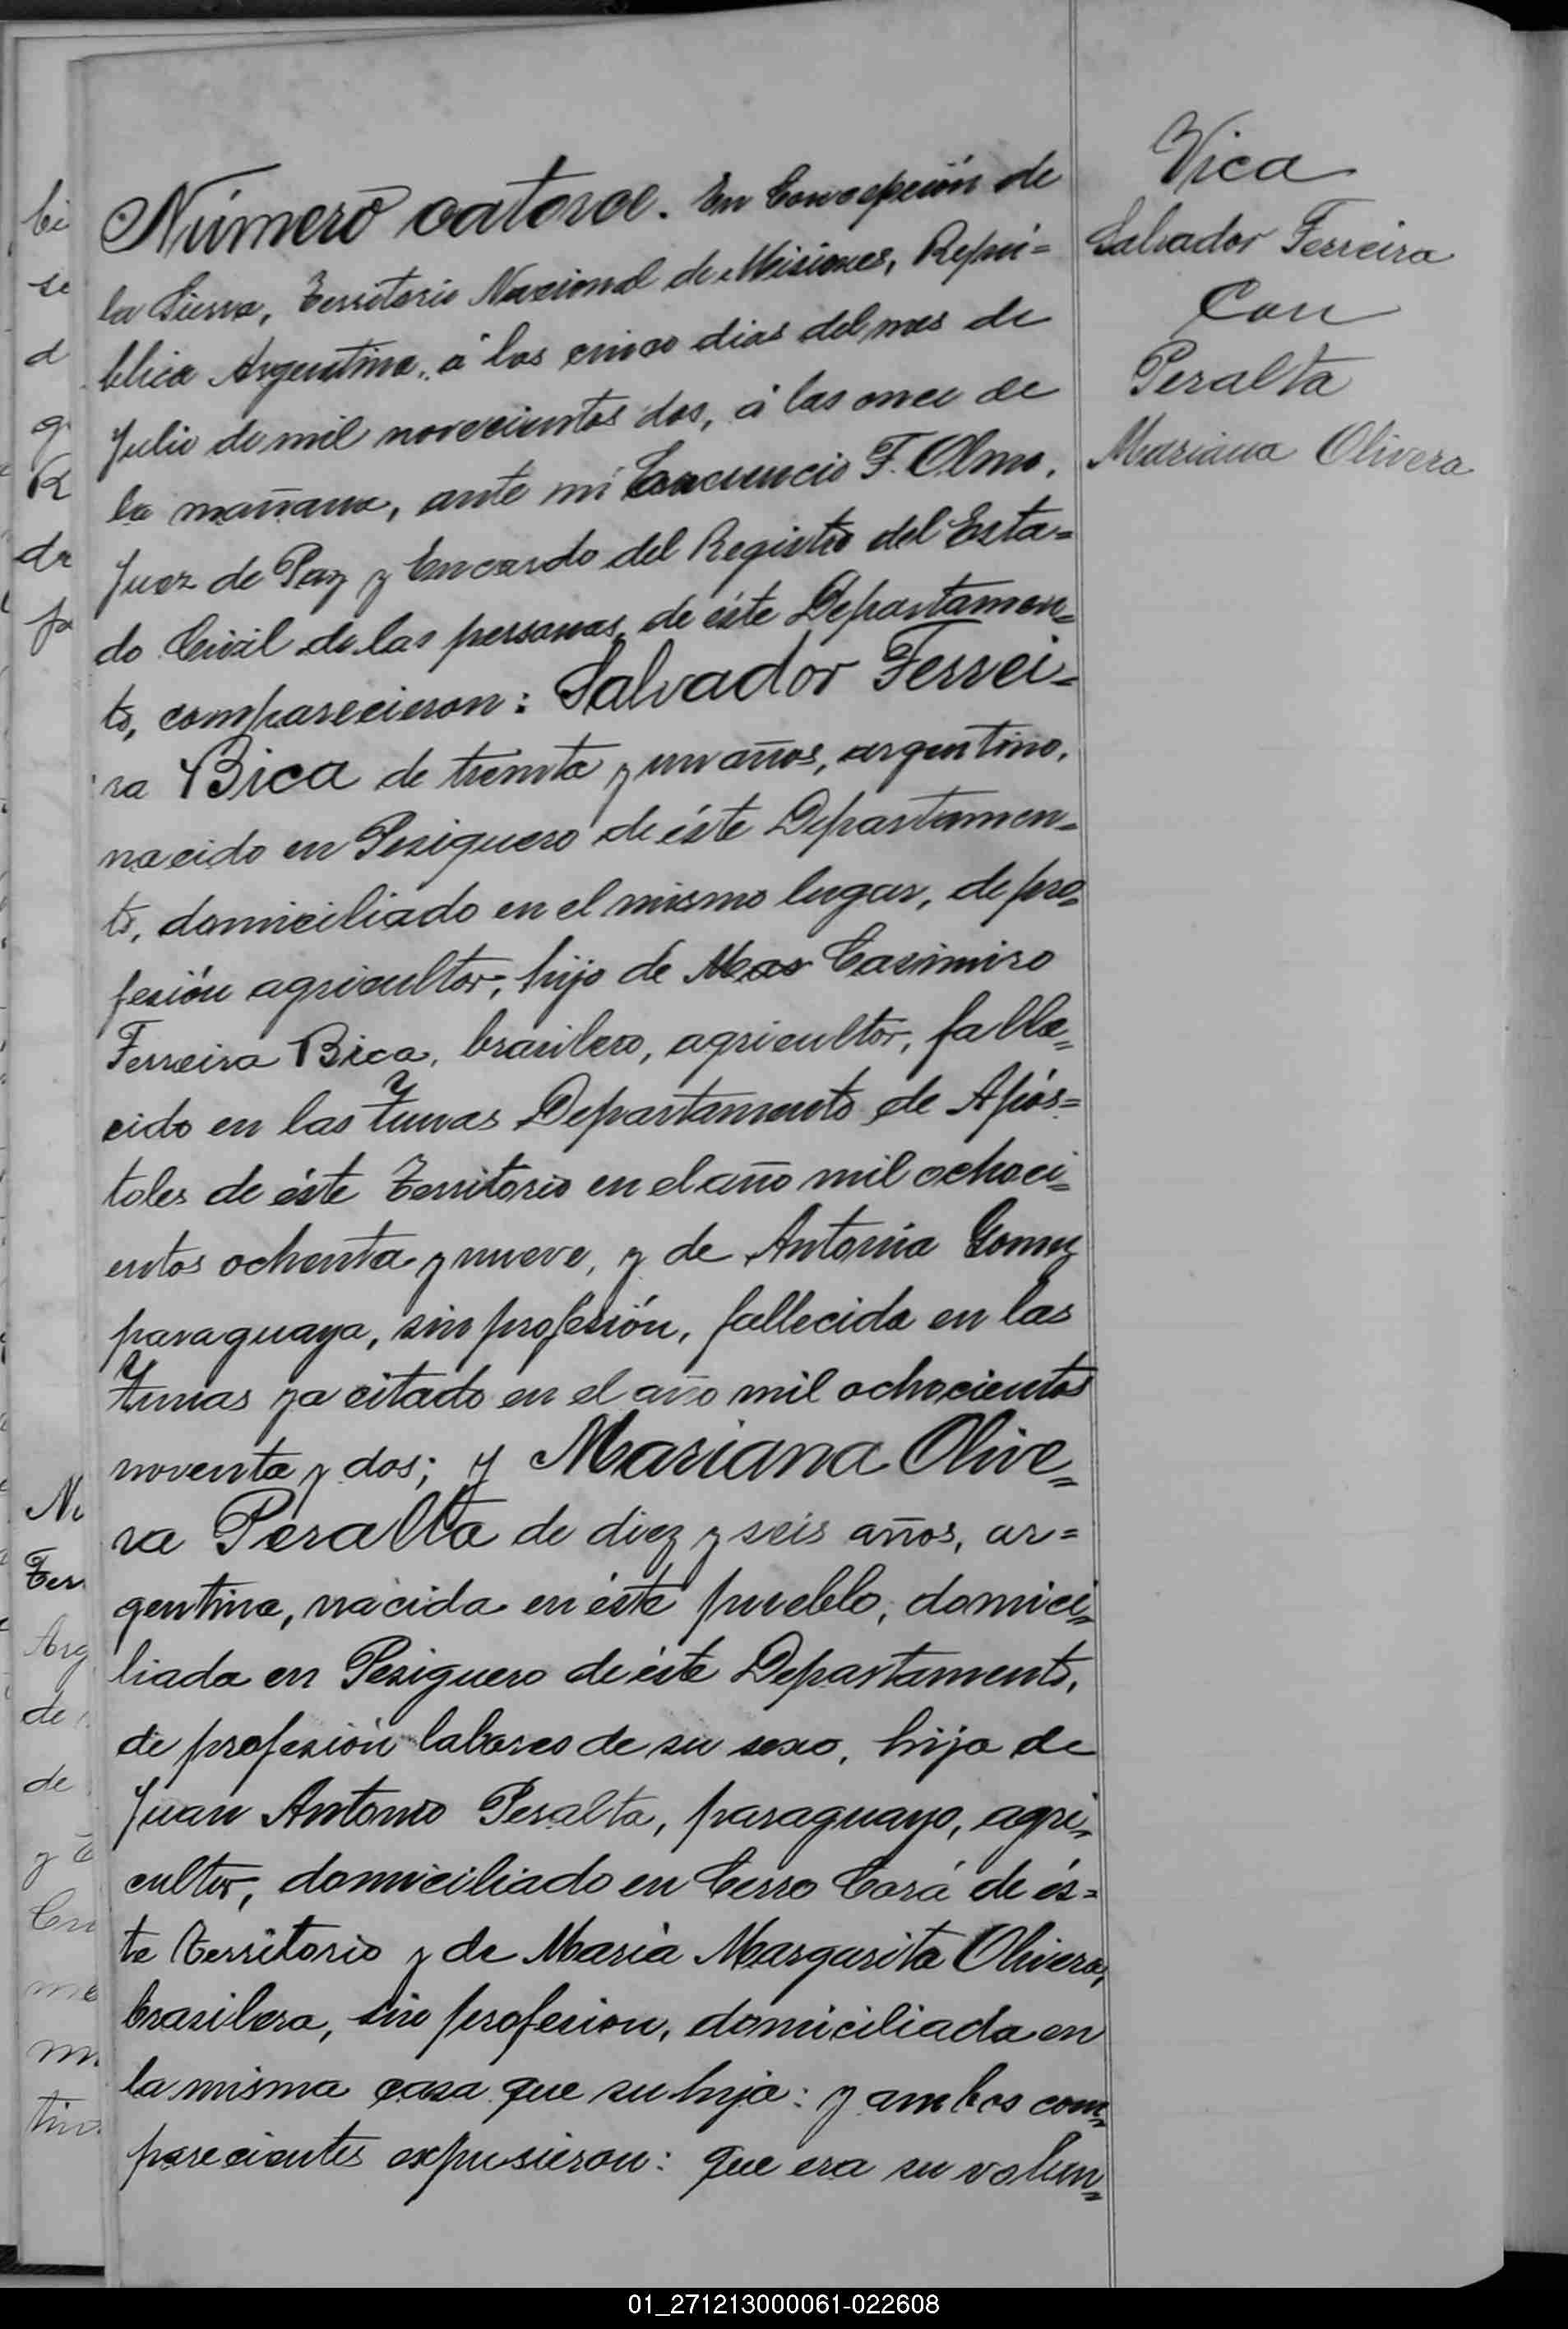 Número catorce. En Concepción de
la Sierra, Territorio Nacional de Misiones, Repú=
blica Argentina, á los cinco dias del mes de
Julio de mil novecientos dos, á las once de
la mañana, ante mi F. Olmo,
Juez de Paz y Encardo del Registro del Esta=
do Civil de las personas de éste Departamen=
to, comparecieron: Salvador Ferrei=
ra Bica de treinta y un años, argentino,
nacido en Persiguero de éste Departamen=
to, domiciliado en el mismo lugar, de pro=
fesión agricultor, hijo de Casimiro
Ferreira Bica, brasilero, agricultor, falle=
cido en las Tunas Departamento de Após=
toles de éste Territorio en el año mil ochoci=
entos ochenta y nueve, y de Antonia Gomez
paraguaya, sin profesión, fallecida en las
Tunas ya citado en el año mil ochocientos
noventa y dos; y Mariana Olive=
ra Peralta de diez y seis años, ar=
gentina, nacida en éste pueblo, domici=
liada en Persiguero de éste Departamento,
de profesión labores de su sexo, hija de
Juan Antonio Peralta, paraguayo, agri=
cultor, domiciliado en Cerro Corá de és=
te Territorio y de Maria Margarita Olivera,
brasilera, sin profesion, domiciliada en
la misma casa que su hija: y ambos com=
parecientes expusieron: que era su volun=
Vica
Salvador Ferreira
Con
Peralta
Mariana Olivera
01_271213000061-022608